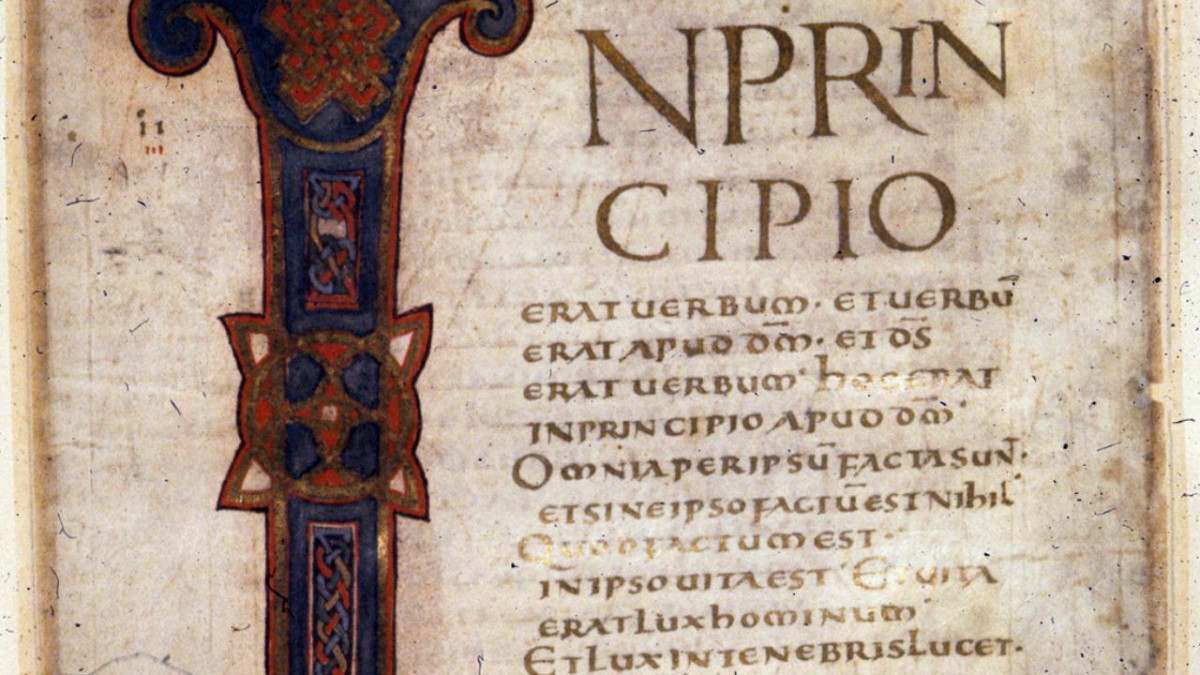 INPRIN
CIPIO
ii
iii
ERAT UERBUM· ET UERBŪ
ERAT APUD DM̄· ET DS̄
ERAT UERBUM· hOC ERAT
IN PRINCIPIO APUD DM̄·
OMNIA PER IPSŪ FACTA SUNT̄·
ET SINE IPSO FACTŪ EST NIhIL
QUOD FACTUM EST·
IN IPSO UITA EST· ET UITA
ERAT LUX hOMINUM·
ET LUX IN TENEBRIS LUCET·